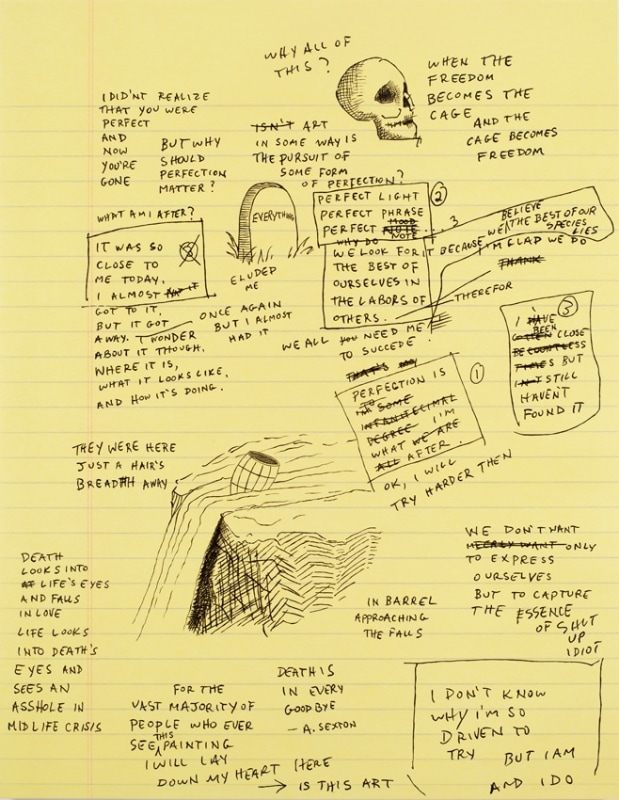 WHY ALL OF
THIS?
WHEN THE
FREEDOM
BECOMES THE
CAGE AND THE
CAGE BECOMES
FREEDOM
I DID'NT REALIZE
THAT YOU WERE
PERFECT
AND
NOW
YOU'RE
GONE
BUT WHY
SHOULD
PERFECTION
MATTER?
ISN'T ART
IN SOME WAY IS
THE PURSUIT OF
SOME FORM
OF PERFECTION?
WHAT AM I AFTER?
IT WAS SO
CLOSE TO
ME TODAY.
I ALMOST HAD IT
GOT TO IT,
BUT IT GOT
AWAY. I WONDER
ABOUT IT THOUGH.
WHERE IT IS,
WHAT IT LOOKS LIKE.
AND HOW IT'S DOING.
ONCE AGAIN
BUT I ALMOST
HAD IT
EVERYTHING
ELUDED
ME
2
PERFECT LIGHT
PERFECT PHRASE
MOOD
PERFECT NOTE
NOTE
3
WHY DO
WE LOOK FOR IT BECAUSE
THE BEST OF
OURSELVES IN
THE LABORS OF
OTHERS.
THEREFOR
BELIEVE
WE THE BEST OF OUR
SPECIES
LIES
I'M GLAD WE DO
THANK
WE ALL YOU NEED ME
TO SUCCEDE.
THAT'S
3
I HAVE
BEEN
GOTTEN CLOSE
COUNTLESS
TIMES BUT
STILL
HAVEN'T
FOUND IT
1
PERFECTION IS
TO
SOME
INFANITELIMAL
DEGREE I'M
WHAT WE ARE
ALL AFTER.
OK, I WILL
TRY HARDER THEN
THEY WERE HERE
JUST A HAIR'S
BREADTH AWAY
DEATH
LOOKS INTO
AT LIFE'S EYES
AND FALLS
IN LOVE
LIFE LOOKS
INTO DEATH'S
EYES AND
SEES AN
ASSHOLE IN
MIDLIFE CRISIS
IN BARREL
APPROACHING
THE FALLS
WE DON'T WANT
MERELY WANT ONLY
TO EXPRESS
OURSELVES
BUT TO CAPTURE
THE ESSENCE
OF SHUT
UP
IDIOT
FOR THE
VAST MAJORITY OF
PEOPLE WHO EVER
THIS
SEE PAINTING
I WILL LAY
DOWN MY HEART HERE
→ IS THIS ART
DEATH IS
IN EVERY
GOODBYE
— A. SEXTON
I DON'T KNOW
WHY I'M SO
DRIVEN TO
TRY BUT I AM
AND I DO